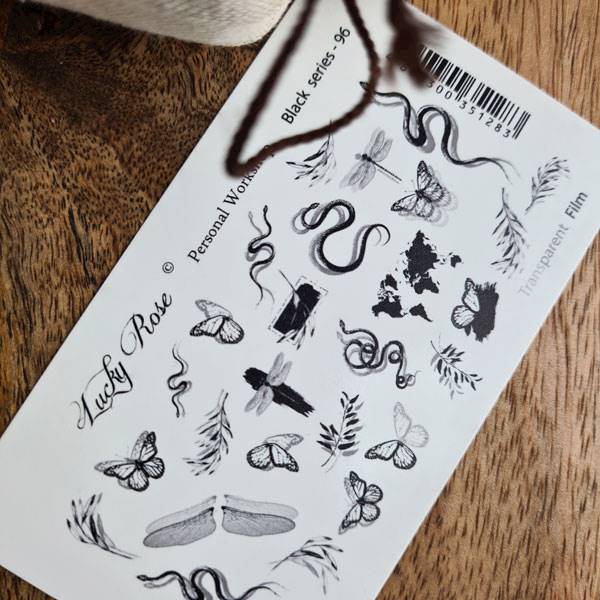 Lucky Rose ©
Personal Works
Black series - 96
300 351283
Transparent Film